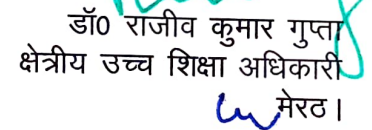 डॉ0 राजीव कुमार गुप्ता
क्षेत्रीय उच्च शिक्षा अधिकारी
मेरठ।